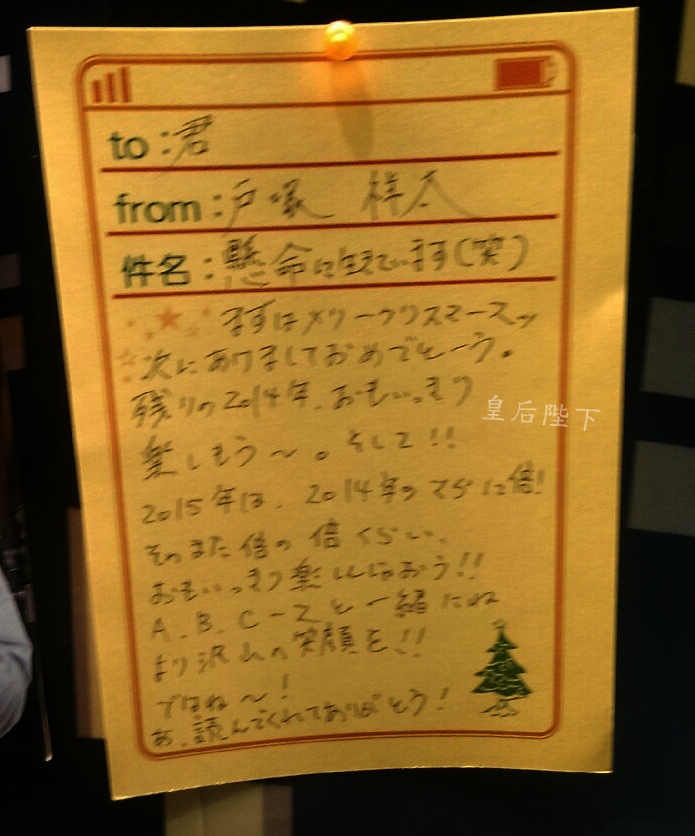 to：君
from：戸塚 祥太
件名：懸命に生きています(笑)
まずはメリークリスマースッ
次にありましておめでとーう。
残りの2014年、おもいっきり
皇后陛下
楽しもう〜。そして!!
2015年は、2014年のさらに倍!
そのまた倍の倍くらい、
おもいっきり楽しんじゃおう!!
A.B.C-Zと一緒にね
より沢山の笑顔を!!
ではね〜!
あ、読んでくれてありがとう!